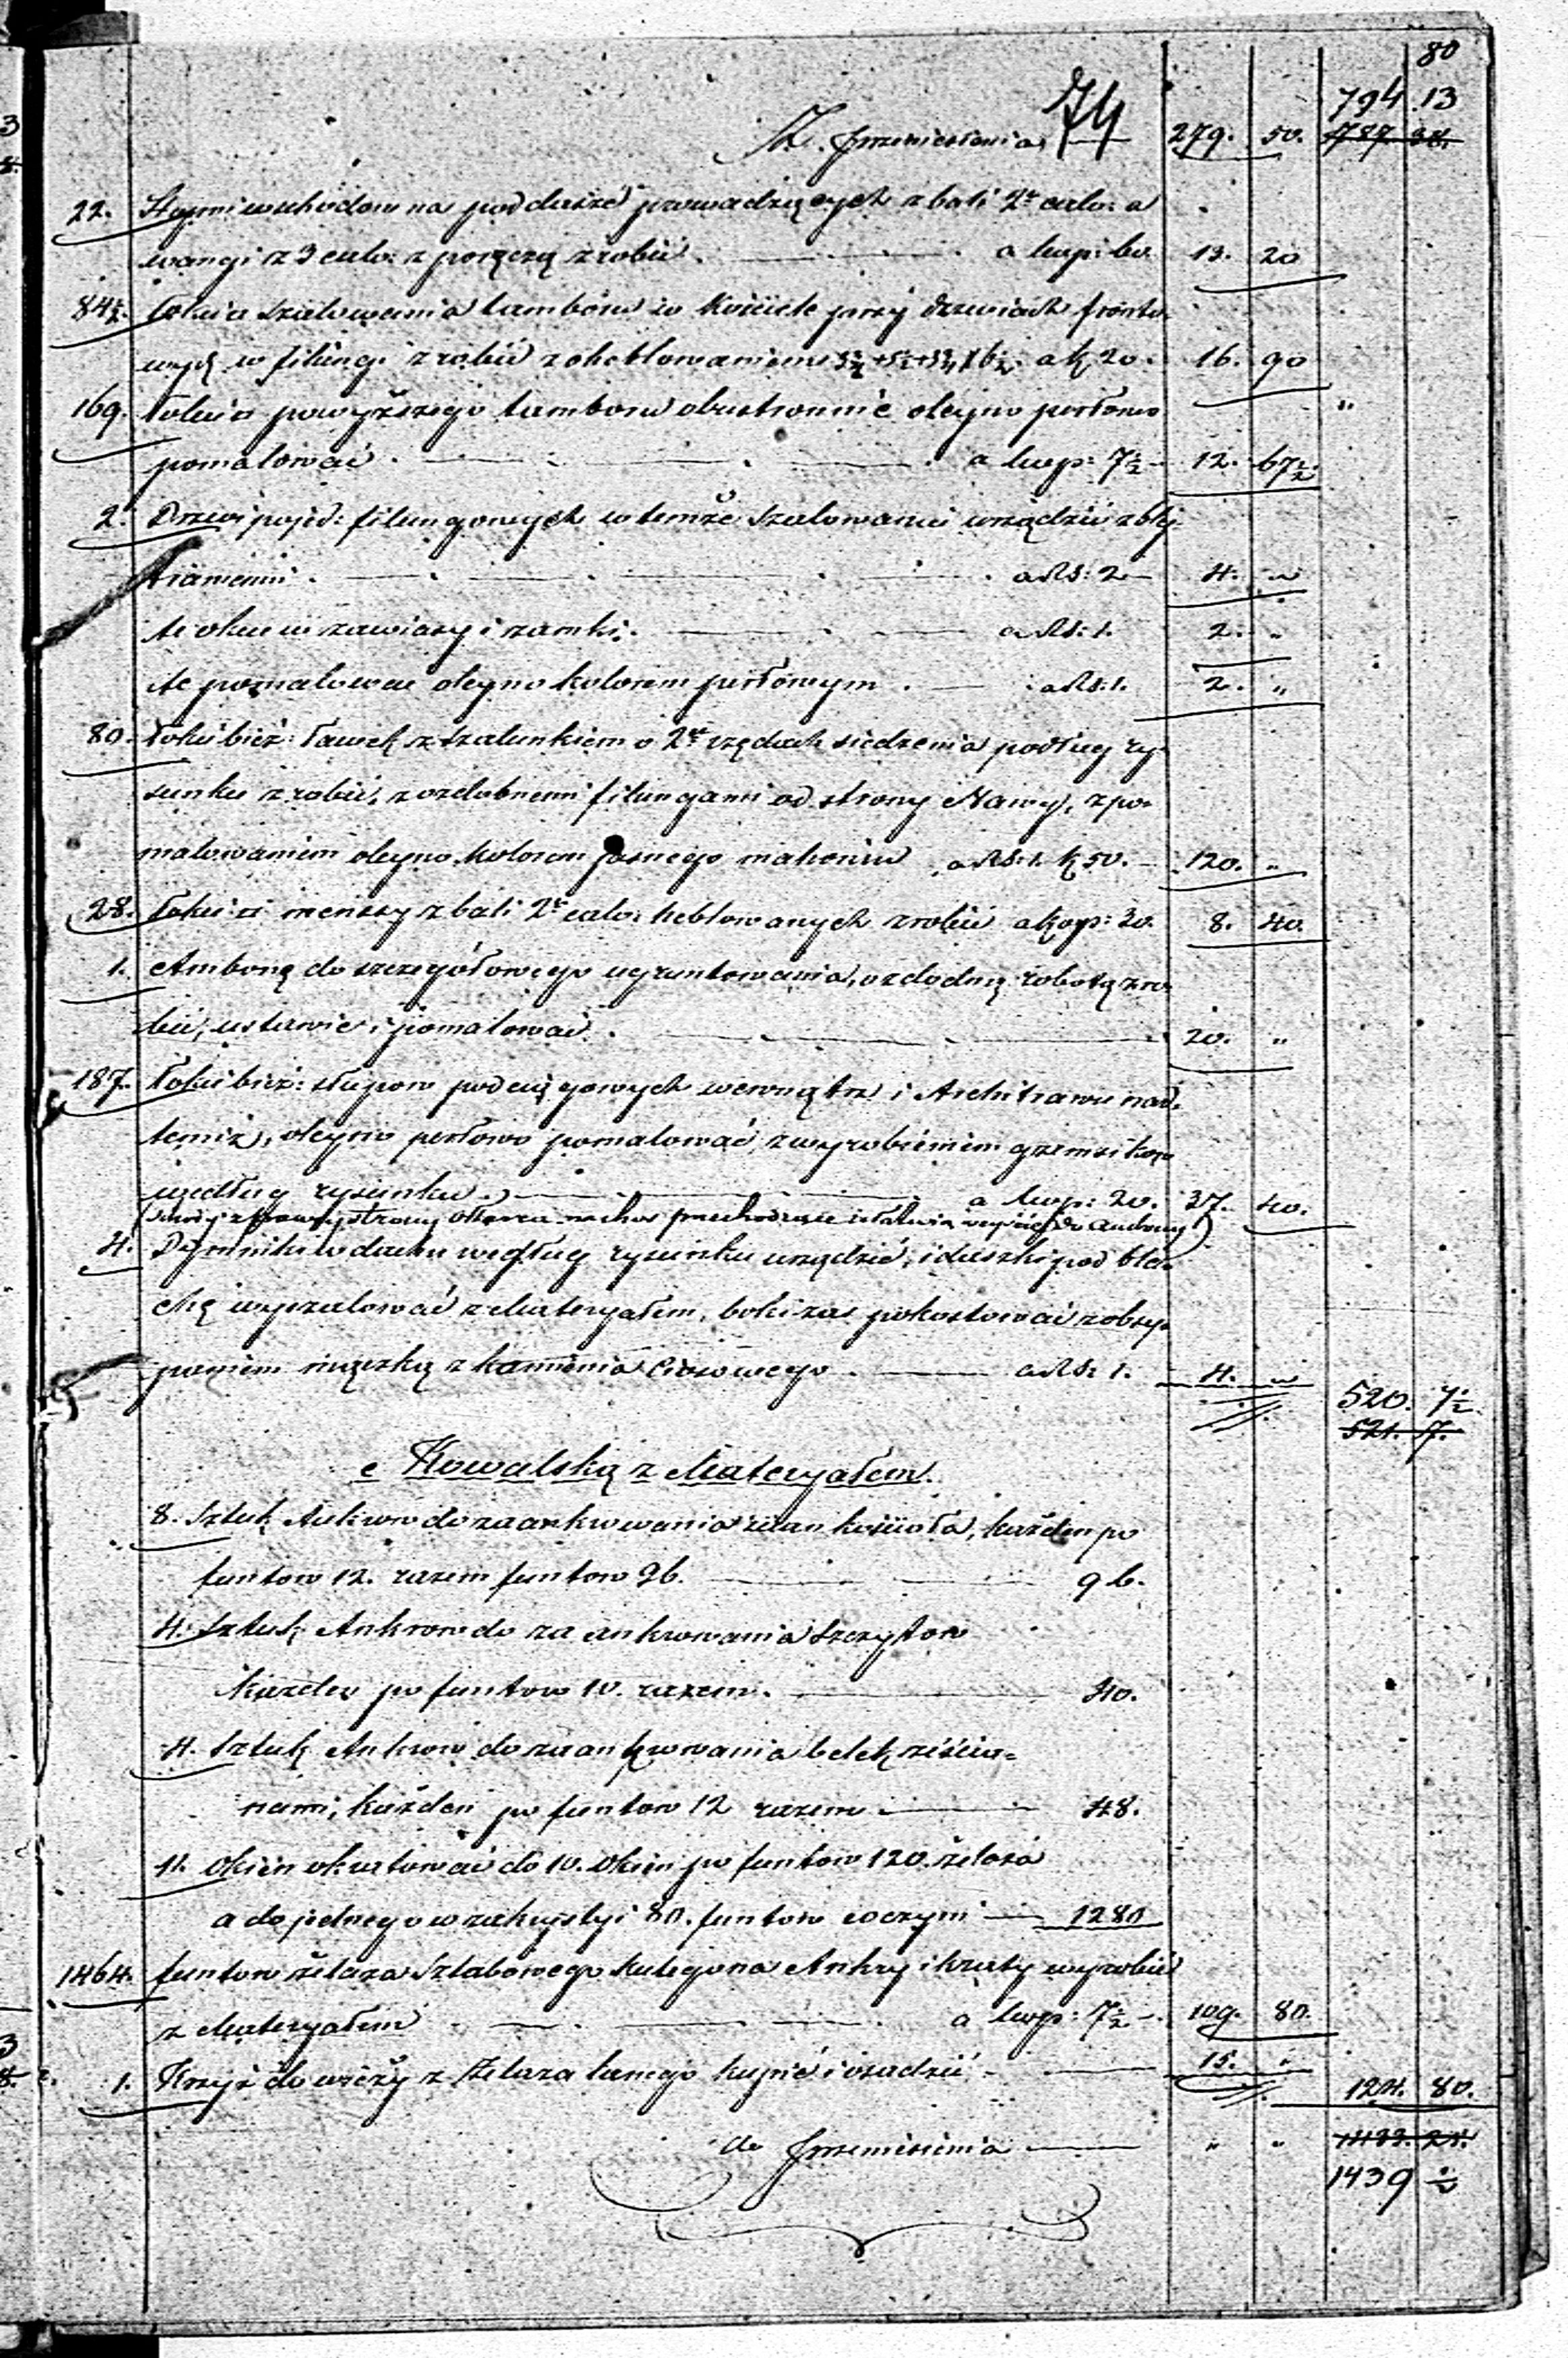 80
74
794 13
Z. przeniesienia 279. 50. 787 38.
22. Stopni wschodów na poddasze prowadzących z bali 2ch calo: a
wangi z 3 calo: z poręczą zrobić. a kop: 60. 13. 20
84½. Łokcia szalowania tamboru w kościele przy drzwiach fronto
wych w filungi zrobić z oheblowaniem a k 20. 16. 90
169. Łokcia powyższego tamboru obustronnie olejno perłowo „
pomalować. a kop: 7½ 12. 67½.
2. Drzwi pojed: filungowych w temże szalowaniu urządzić z blej
tramami. a Rs: 2 4. „
te okuć w zawiasy i zamki. a Rs: 1. 2. „
te pomalować olejno kolorem perłowym. a Rs: 1. 2. „
80. Łokci bież: ławek z szalunkiem o 2ch rzędach siedzenia podług ry
sunku zrobić, z ozdobnemi filungami od strony Nawy, z po
malowaniem olejno kolorem jasnego mahoniu a Rs: 1. k 50. 120. „
28. Łokci zbali 2ch calo: heblowanych zrobić a kop: 30. 8. 40.
1. Ambonę do szczegółowego ugruntowania, ozdobną robotą zro
bić, ustawić i pomalować. 20. „
187. Łokci bież: słupów podciągowych wewnątrz i Architrawu nad
temiż, olejno perłowo pomalować, z wyrobieniem gzemsików
według rysunku. a kop: 20. 37. 40.
4. Dymniki w dachu według rysunku urządzić, i daszki pod bla
chę wyszalować z Materyałem, boki zaś pokostować z obsy
paniem mączką z kamienia Ciosowego. a Rs: 1. 4. „
520. 7½.
521. 7.
e Kowalską z Materyałem.
8. Sztuk Ankrów do zaankrowania ścian kościoła, każden po
funtów 12. razem funtów 96. 96.
4. Sztuk Ankrow do za ankrowania Szczytów
Każden po funtow 10. razem. 40.
4. Sztuk Ankrow do zaankrowania belek z ścia=
nami, każden po funtow 12 razem 48.
11. Okien okratować do 10. Okien po funtow 120. żelaza
a do jednego w zakrystyi 80. funtów co czyni 1280
1464. funtow żelaza Sztabowego kutego na Ankry i kraty wyrobić
z Materyałem a kop: 7½ 109. 80.
1. Krzyż do wieży z Żelaza lanego kupić i osadzić 15. „
124. 80.
do Przeniesienia „ „ 1433. 25.
1439 ½